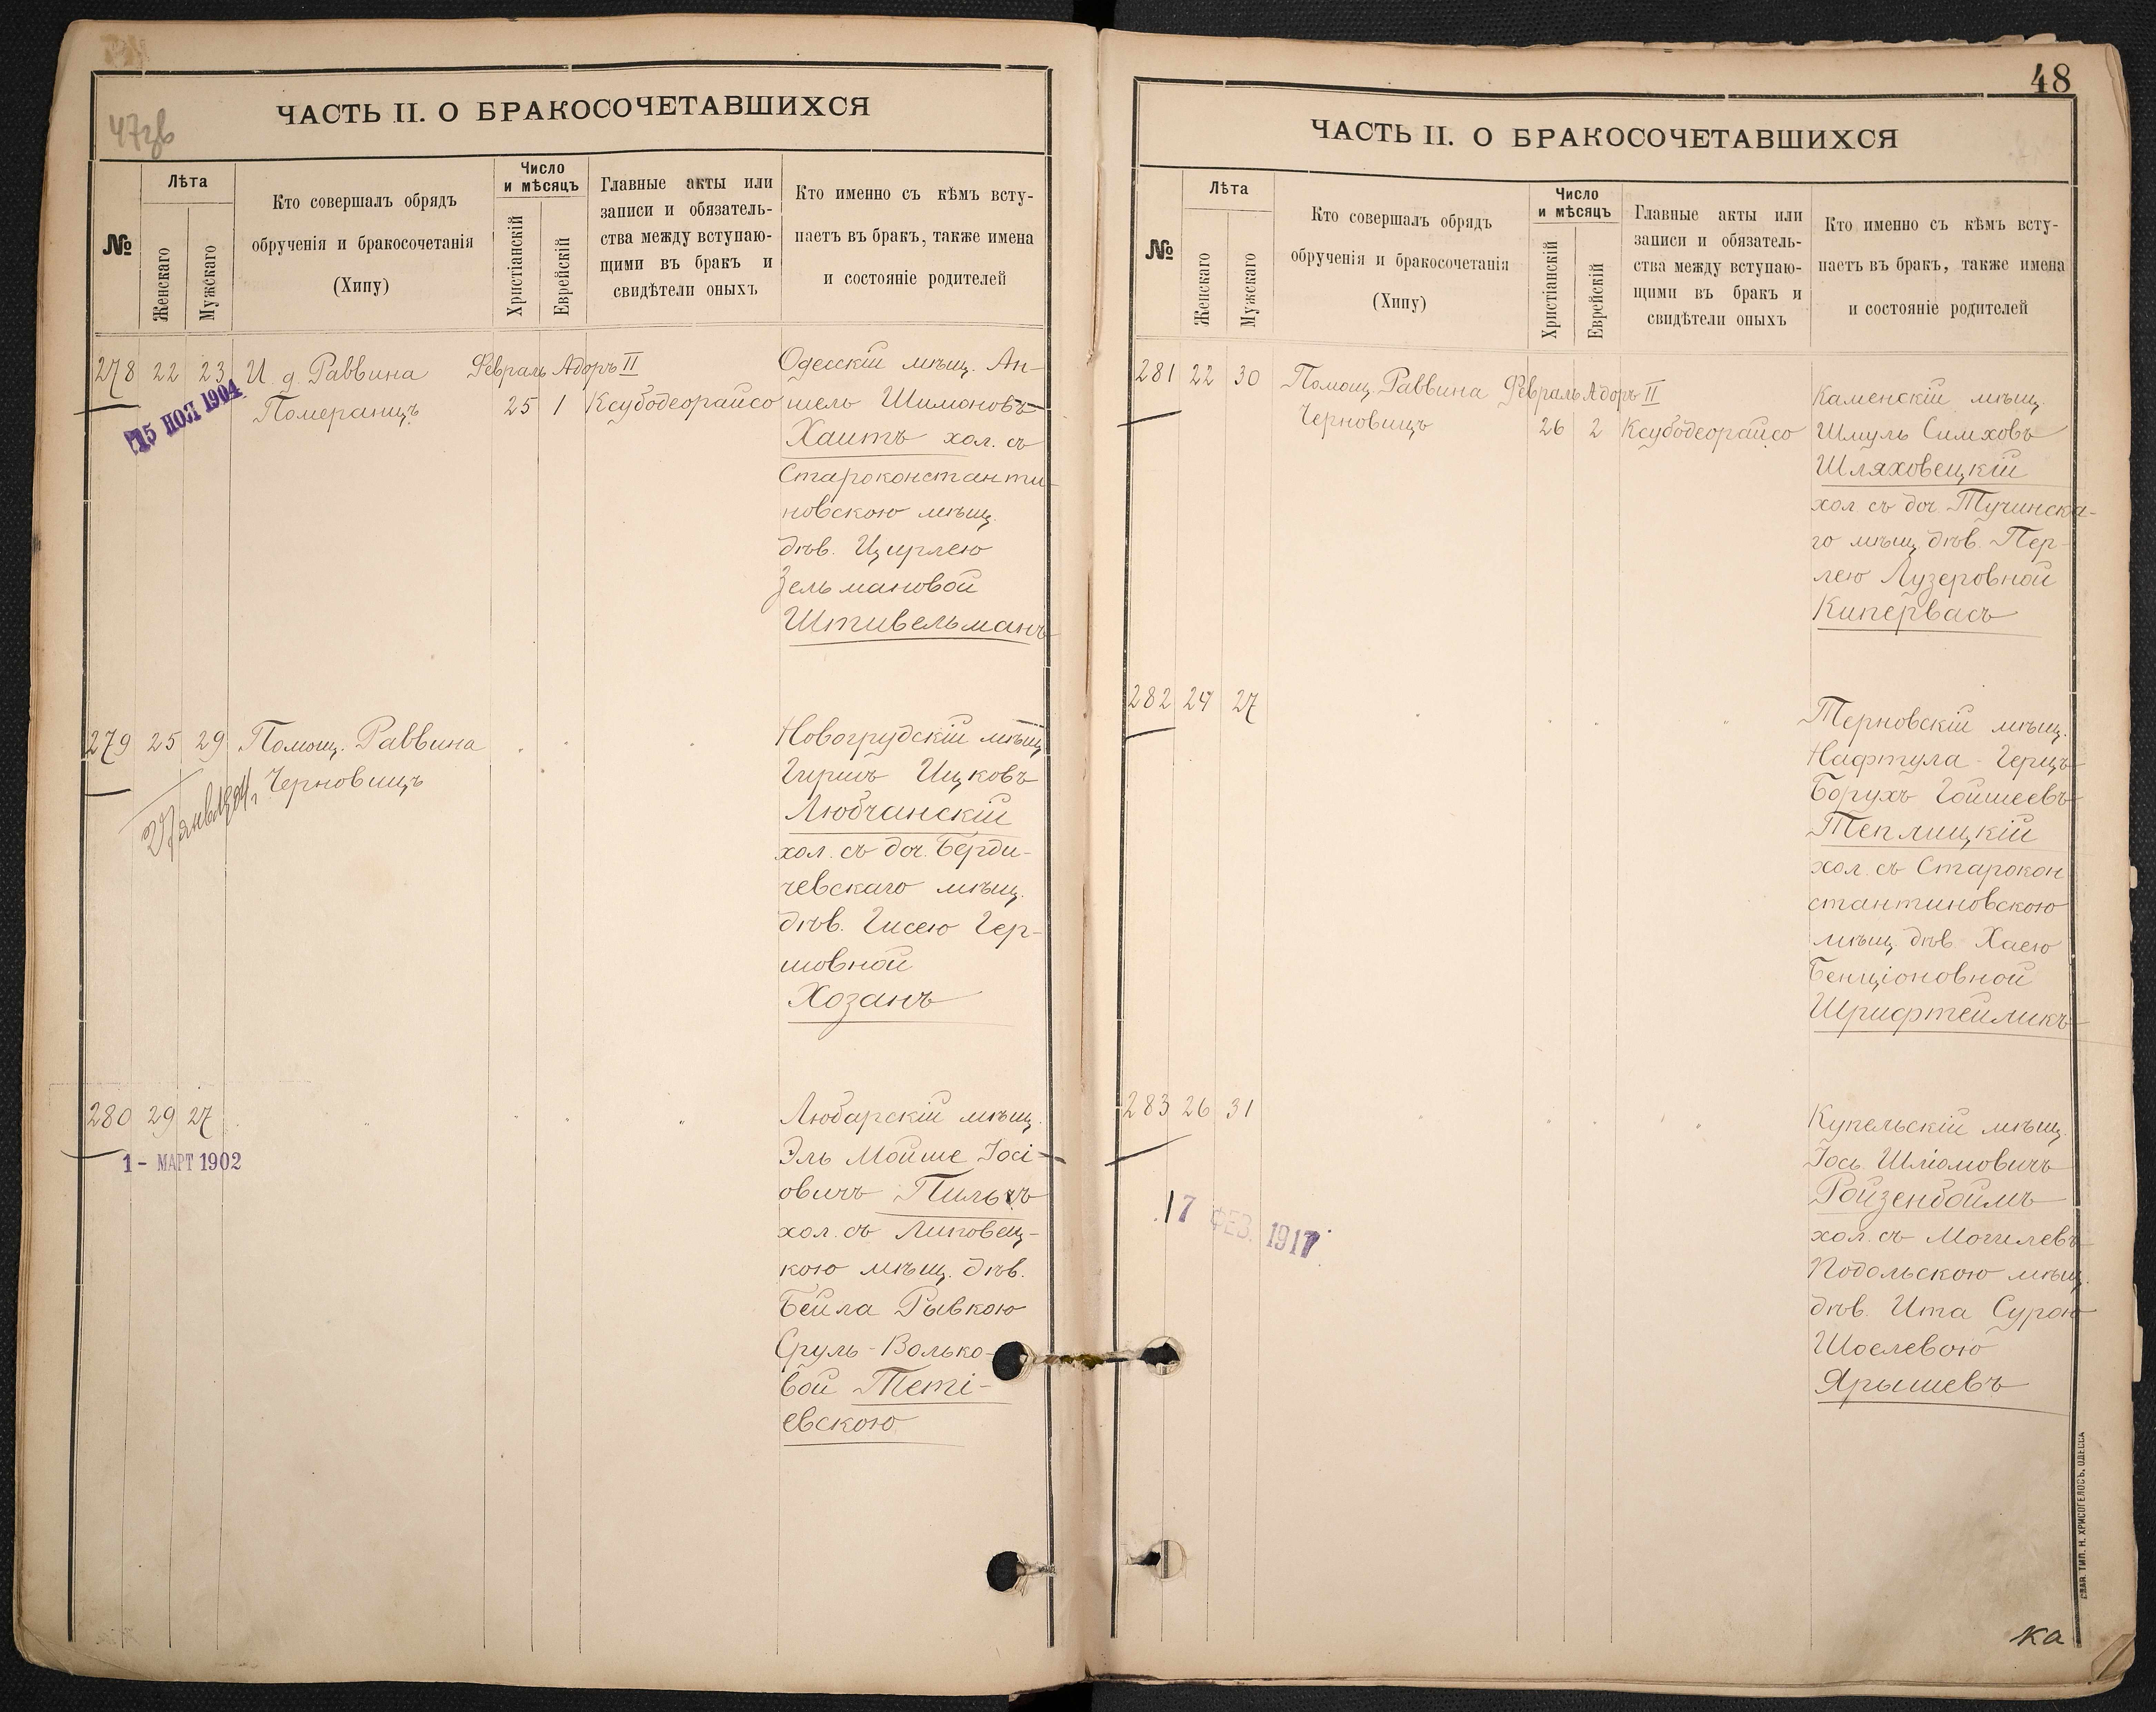 47зв
ЧАСТЬ II. О БРАКОСОЧЕТАВШИХСЯ
№
Лѣта
Женскаго
Мужскаго
Кто совершалъ обрядъ
обрученія и бракосочетанія
(Хипу)
Число
и мѣсяцъ
Христіанскій
Еврейскій
Главные акты или
записи и обязатель-
ства между вступаю-
щими въ бракъ и
свидѣтели оныхъ
Кто именно съ кѣмъ всту-
паетъ въ бракъ, также имена
и состояніе родителей
278 22 23 И. д. Раввина Февраль Адоръ II
Померанцъ 25 1 Ксубодеорайсо
15 НОЯ 1904
Одесскій мѣщ. Ан-
шель Шимоновъ
Хаитъ хол. съ
Староконстанти-
новскою мѣщ.
дѣв. Цирлею
Зельмановой
Штивельманъ
279 25 29 Помощ. Раввина
Черновицъ
27 янв 1904 г.
Новогрудскій мѣщ.
Гиршъ Ицковъ
Любчанскій
хол. съ доч. Берди-
чевскаго мѣщ.
дѣв. Гисею Гер-
шовной
Хозанъ
280 29 27 " " " "
1 - МАРТ 1902
Любарскій мѣщ.
Эль Мойше Іосі-
овичъ Пильчъ
хол. съ Липовец-
кою мѣщ. дѣв.
Бейла Рывкою
Сруль-Волько-
вой Теті-
евскою
48
ЧАСТЬ II. О БРАКОСОЧЕТАВШИХСЯ
№
Лѣта
Женскаго
Мужскаго
Кто совершалъ обрядъ
обрученія и бракосочетанія
(Хипу)
Число
и мѣсяцъ
Христіанскій
Еврейскій
Главные акты или
записи и обязатель-
ства между вступаю-
щими въ бракъ и
свидѣтели оныхъ
Кто именно съ кѣмъ всту-
паетъ въ бракъ, также имена
и состояніе родителей
281 22 30 Помощ. Раввина Февраль Адоръ II
Черновицъ 26 2 Ксубодеорайсо
Каменскій мѣщ.
Шмуль Симховъ
Шляховецкій
хол съ доч. Тучинска-
го мѣщ. дѣв. Пер-
лею Лузеровной
Кипервасъ
282 24 27 " " " "
Терновскій мѣщ.
Нафтула-Герцъ
Борухъ Гойшеевъ
Теплицкій
хол. съ Старокон
стантиновскою
мѣщ. дѣв. Хаею
Бенціоновной
Шрифтейликъ
283 26 31 " " " "
17 ФЕВ. 1917
Купельскій мѣщ.
Іось Шліомовичъ
Ройзенбоймъ
хол. съ Могилевъ
Подольскою мѣщ.
дѣв. Ита Сурою
Шоелевою
Ярышевъ
СЛАВ. ТИП. Н. ХРИСОГЕЛОСЪ. ОДЕССА
ка